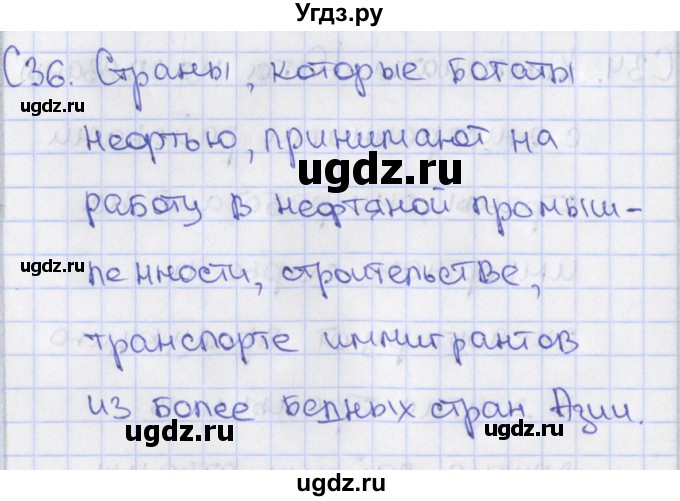 Угдз.ру
С36. Страны, которые богаты
ugdz.ru
ugdz.ru
нефтью, принимают на
ugdz.ru
работу в нефтяной промыш-
ugdz.ru
ugdz.ru
ленности, строительстве,
транспорте иммигрантов
ugdz.ru
из более бедных стран Азии.
ugdz.ru
ugdz.ru